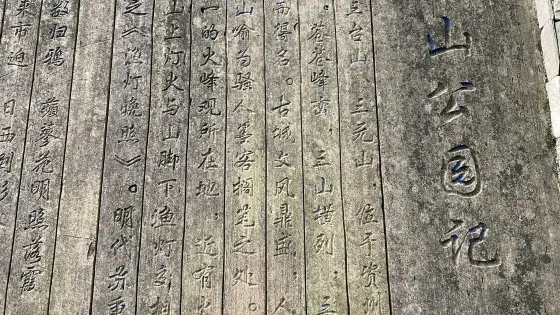 山公园记
三台山、三元山,位于资州
。苍苍峰峦,三山横列,三
而得名。古城文风鼎盛,人
山喻为骚人墨客搁笔之处。
一的火峰观所在地;近有
山上灯火与山脚下渔灯交相
之《渔灯晚照》。明代
数归鸦 蘋蓼花明照落霞
市迫 日西倒影